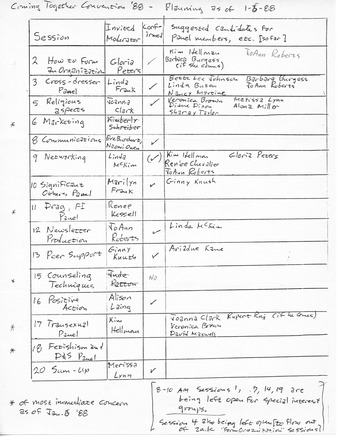 Coming Together Convention '88 - Planning as of 1-5-88
Session
Invited Moderator
Confirmed
Suggested Candidates for
Panel members, etc. [So far]
2 How to Form an Organization
Gloria Peters
✓
Kim Hellman JoAnn Roberts
Barbara Burgess
(if she comes)
3 Cross-Dresser Panel
Linda Frank
✓
Johnson Barbara Burgess
Linda JoAnn Roberts
Nancy
5 Religious aspects
Joanna Clark
✓
Veronica Brown Merissa Lynn
Diane Dixon Miller
Taylor
* 6 Marketing
Kimberly Schreiber
8 Communications
Naomi Owen
✓
9 Networking
Linda McKim
(✓)
Kim Hellman Gloria Peters
Renée Chevalier
JoAnn Roberts
10 Significant Others Panel
Marilyn Frank
✓
Ginny Knuth
* 11 Drag, FI Panel
Renee Kessell
12 Newsletter Production
JoAnn Roberts
✓
Linda McKim
13 Peer Support
Ginny Knuth
✓
Ariadne Kane
* 15 Counseling Techniques
Jude Patton
NO
16 Positive Action
Alison Laing
✓
* 17 Transexual Panel
Kim Hellman
Joanna Clark Rupert Raj (if he comes)
Veronica Brown
David
* 18 Fetishism and D&S Panel
20 Sum-Up
Merissa Lynn
✓
* of most immediate concern
as of Jan. 5 '88
8-10 AM Sessions 1, 7, 14, 19 are
being left open for special interest
groups.
Session 4 also being left open to flow out
of 2